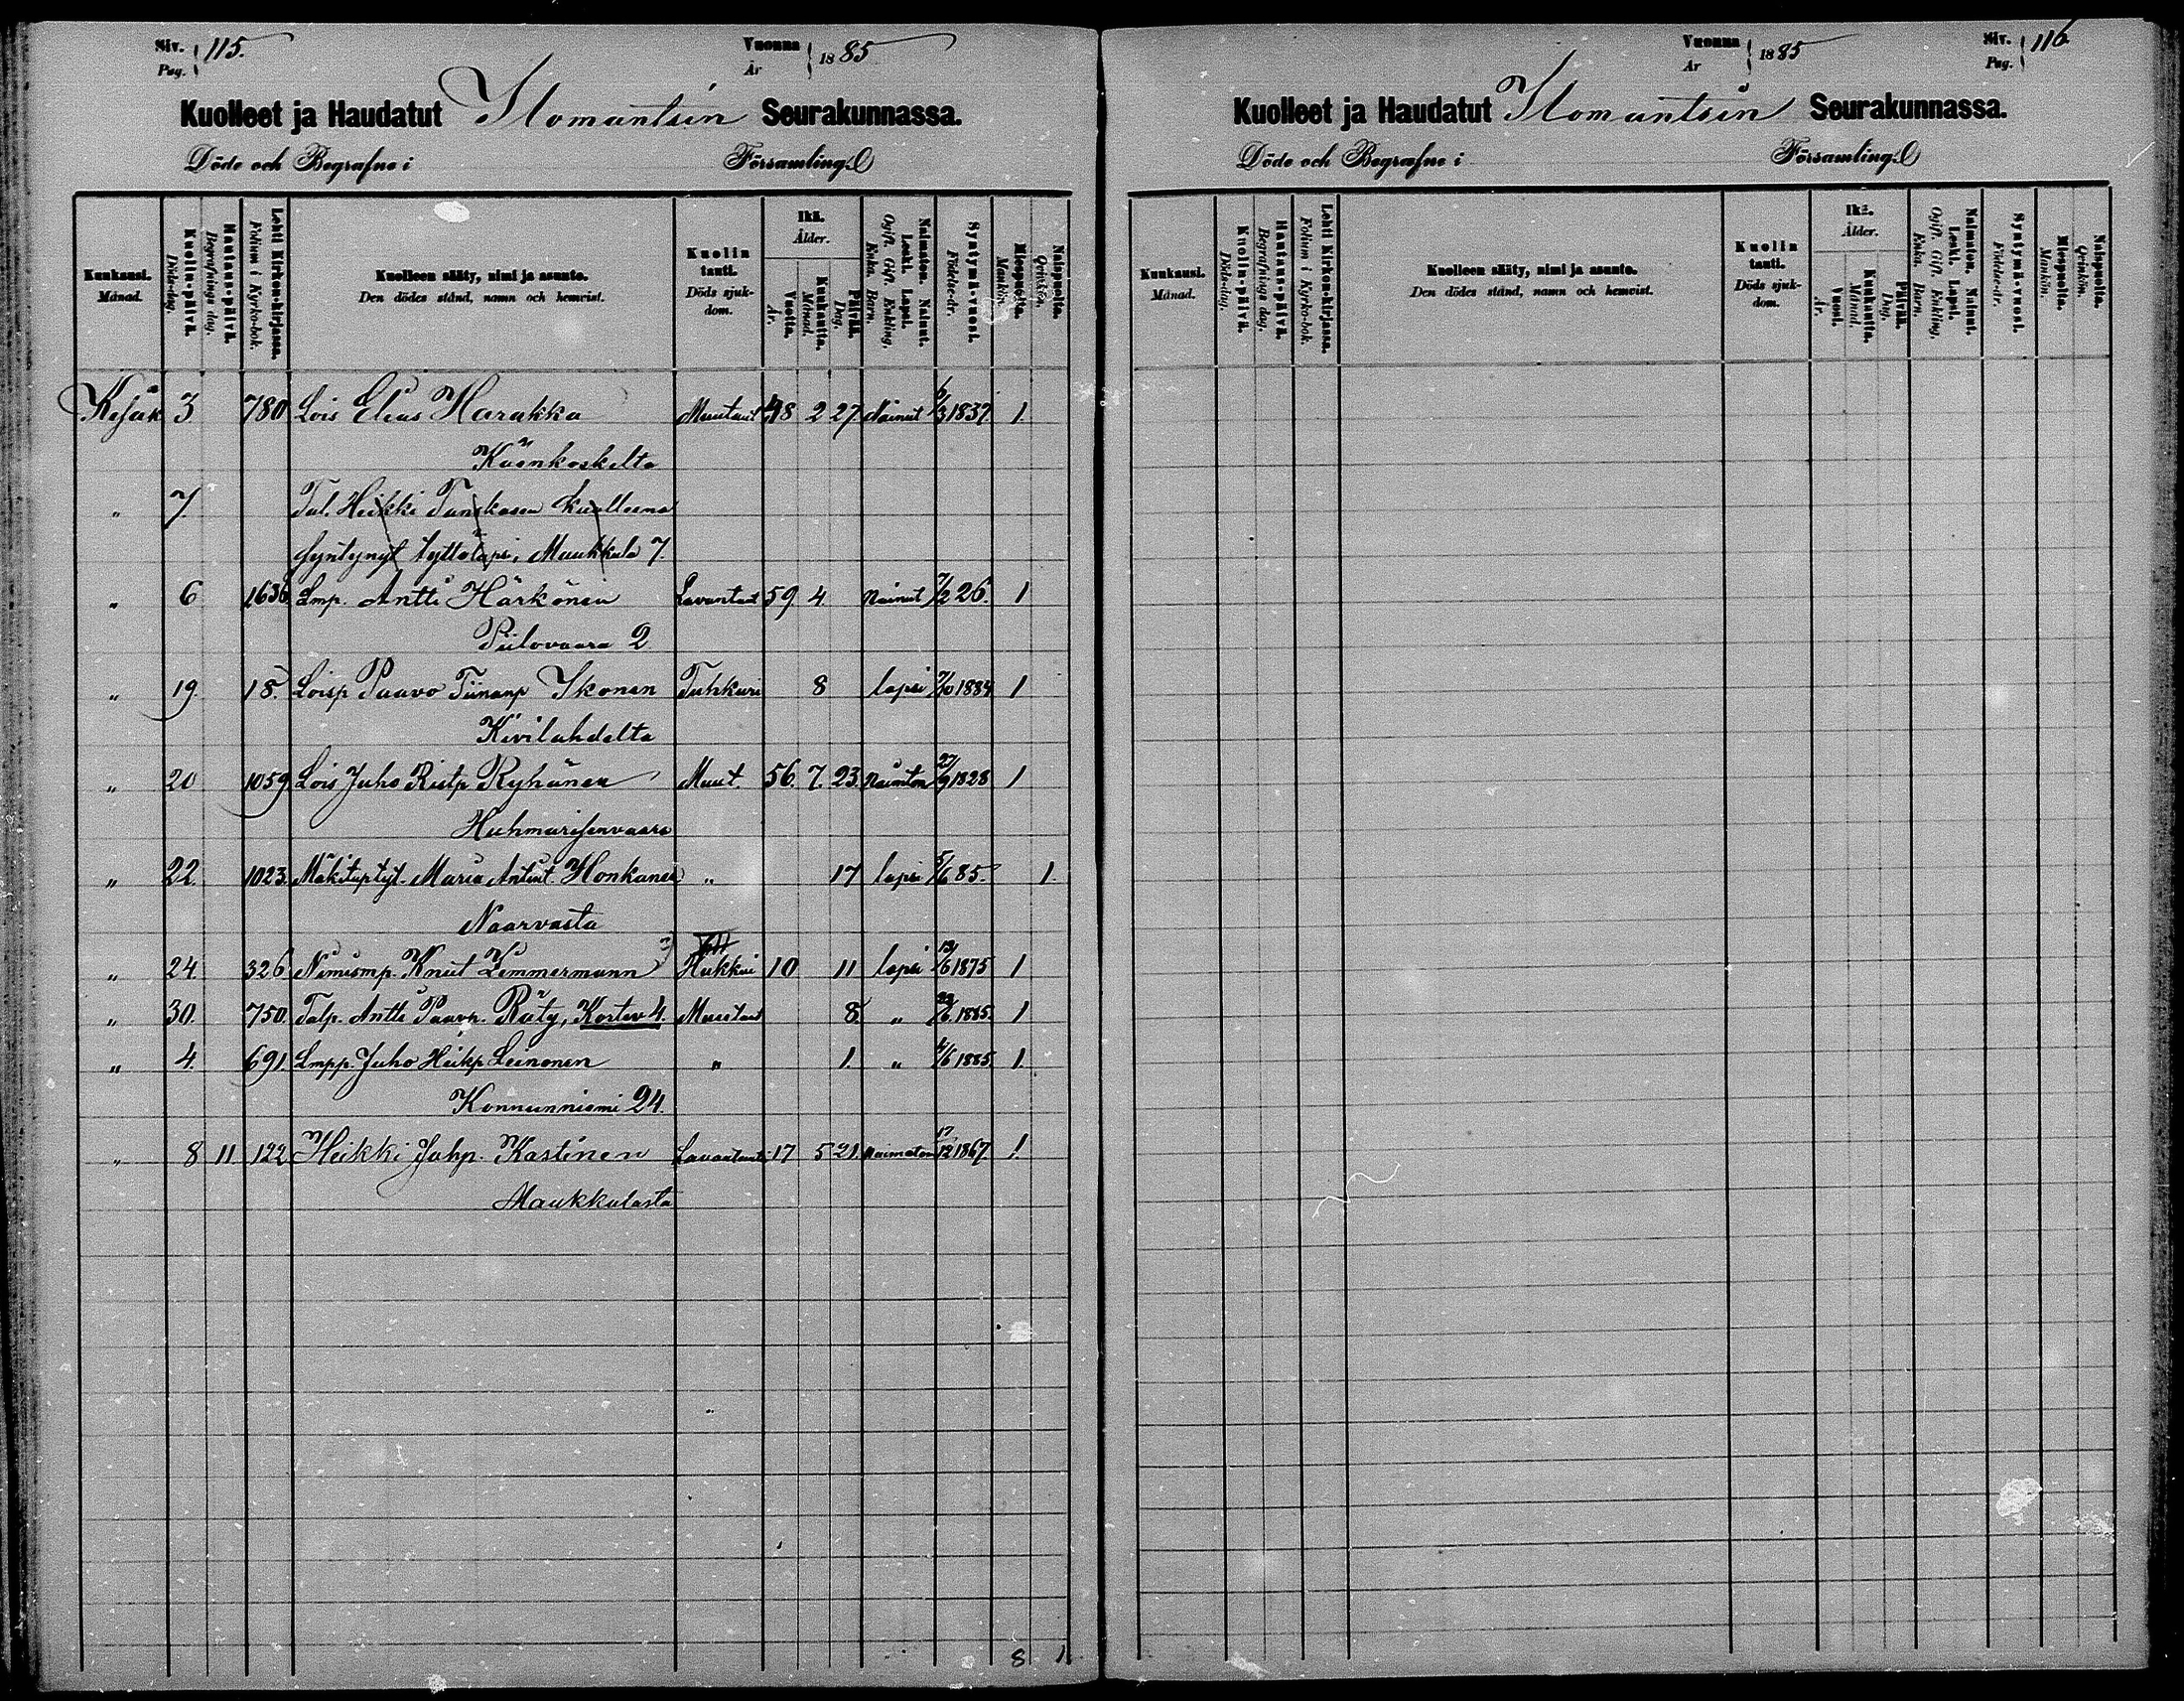 Siv. 115.
Pag.
Vuonna 1885
År
Kuolleet ja Haudatut Ilomantsin Seurakunnassa.
Döde och Begrafne i Församling.
Kuukausi. Månad.
Kuolin-päivä. Döds-dag.
Hautaus-päivä. Begrafnings dag.
Lehti Kirkon-kirjassa. Folium i Kyrko-bok.
Kuolleen sääty, nimi ja asunto. Den dödes stånd, namn och hemvist.
Kuolin tauti. Döds sjuk-dom.
Ikä. Ålder.
Vuotta. År.
Kuukautta. Månad.
Päivää. Dag.
Naimaton. Nainut. Leski. Lapsi. Ogift. Gift. Enkling. Enka. Barn.
Syntymä-vuosi. Födelse-år.
Miespuolta. Mankön.
Naispuolta. Qvinkön.
Kesäk 3 780 Lois Elias Harakka Muutaut 48 2 27 Nainut 6/3 1837. 1.
Käänkoskelta
„ 7. Tal. Heikki Tanskasen kuolleena
syntynyt tyttölapsi, Maukkula 7.
„ 6 1636 Lmp. Antti Härkönen Lavantaut 59. 4. Nainut 7/2 26. 1
Piilovaara 2
„ 19. 18. Loisp Paavo Tiinanp Ikonen Tuhkuri 8 lapsi 7/10 1884 1
Kivilahdelta
„ 20 1059 Lois Juho Ristp Ryhänen Muut. 56. 7. 23. Naimton 27/9 1828 1
Huhmarisenvaara
„ 22. 1023. Mäkituptyt. Maria Antint. Honkanen „ 17 lapsi 5/6 85. 1.
Naarvasta
„ 24. 326 Nimismp. Knut Lemmermann Hukkui 10 11 lapsi 13/6 1875 1
„ 30. 750. Talp. Antti Paavp. Räty, Kortev 4. Muutaut 8. „ 22/6 1885. 1
„ 4. 691. Lmpp. Juho Heikp Leinonen „ 1. „ 4/6 1885. 1.
Konnunniemi 24.
„ 8 11. 122 Heikki Juhp. Kastinen Lavantauti 17 5 21. Naimaton 17/12 1867. 1.
Maukkulasta
8 1
Vuonna 1885
År
Siv. 116
Pag.
Kuolleet ja Haudatut Ilomantsin Seurakunnassa.
Döde och Begrafne i Församling.
Kuukausi. Månad.
Kuolin-päivä. Döds-dag.
Hautaus-päivä. Begrafnings dag.
Lehti Kirkon-kirjassa. Folium i Kyrko-bok.
Kuolleen sääty, nimi ja asunto. Den dödes stånd, namn och hemvist.
Kuolin tauti. Döds sjuk-dom.
Ikä. Ålder.
Vuosi. År.
Kuukautta. Månad.
Päivää. Dag.
Naimaton. Nainut. Leski. Lapsi. Ogift. Gift. Enkling. Enka. Barn.
Syntymä-vuosi. Födelse-år.
Miespuolta. Mankön.
Naispuolta. Qvinkön.